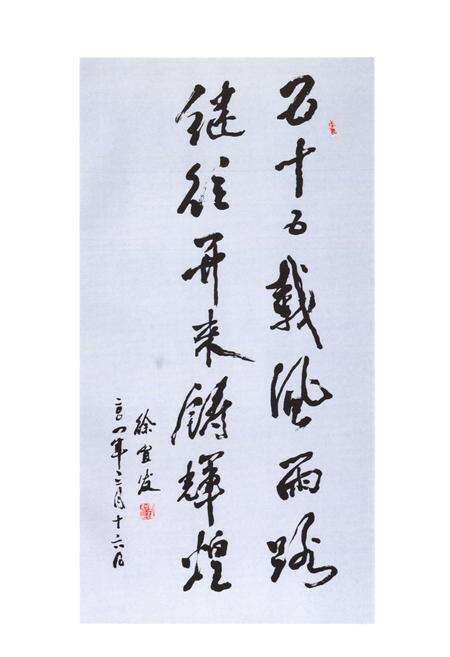 五十五載风雨路
继往开来铸輝煌
徐宜发
二〇〇八年月十六日